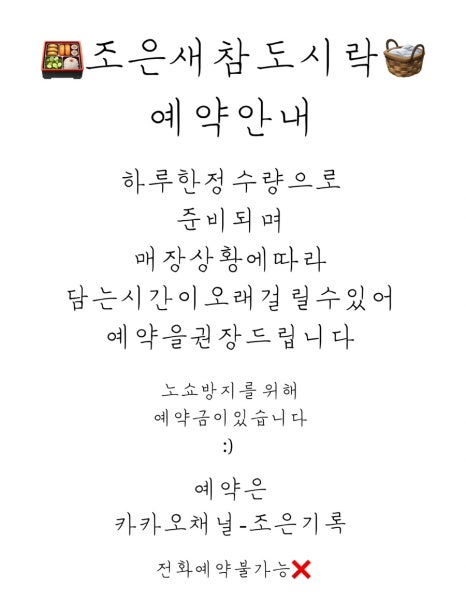 🍱조은새참도시락🧺
예약안내
하루한정 수량으로
준비되며
매장상황에따라
담는시간이오래걸릴수있어
예약을권장드립니다
노쇼방지를 위해
예약금이있습니다
:)
예약은
카카오채널-조은기록
전화예약불가능❌